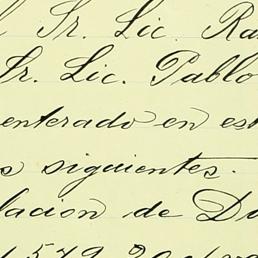 l Sr. Lic. Ra
Sr. Lic. Pablo
enterado en est
s siguientes.
lacion de Du
1,579.20